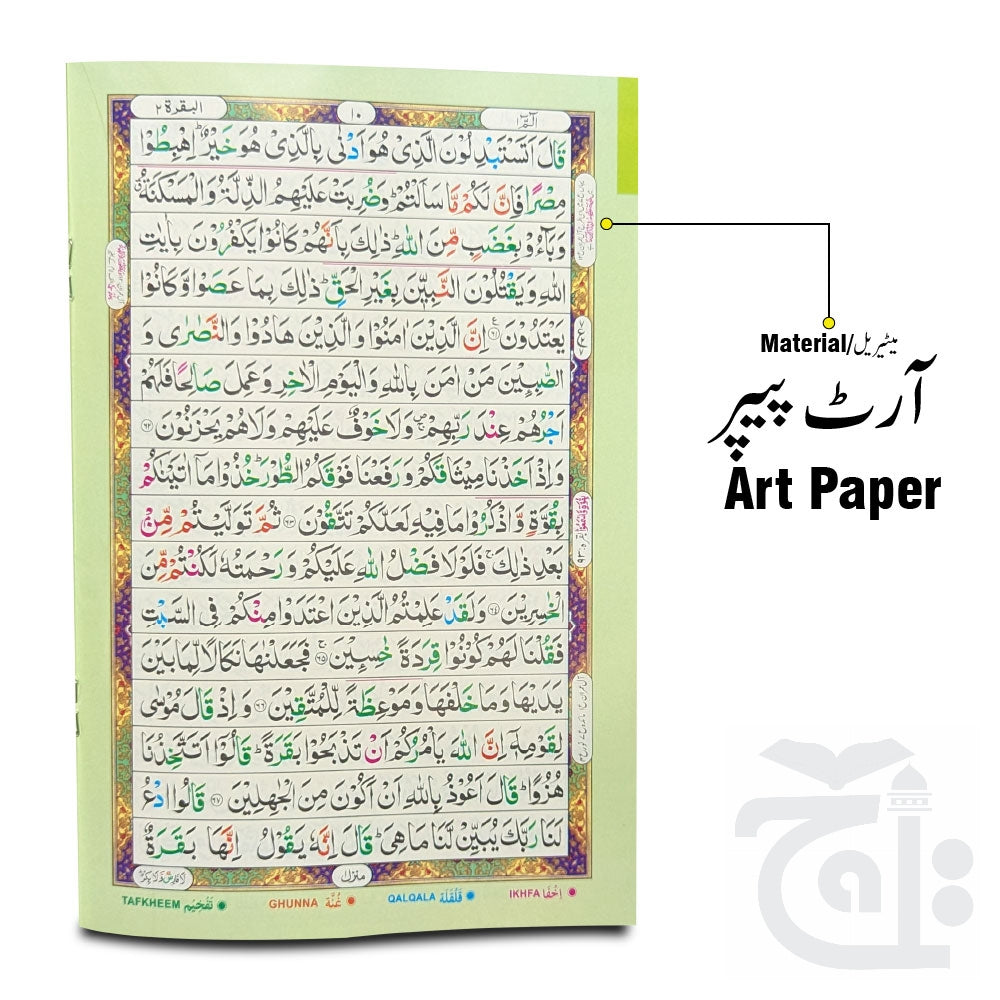 البقرة ٢
١٠
الٓمّٓ ١
قَالَ اَتَسْتَبْدِلُوْنَ الَّذِیْ هُوَ اَدْنٰی بِالَّذِیْ هُوَ خَیْرٌ ؕ اِهْبِطُوْا
مِصْرًا فَاِنَّ لَكُمْ مَّا سَاَلْتُمْ ؕ وَضُرِبَتْ عَلَیْهِمُ الذِّلَّةُ وَالْمَسْكَنَةُ
وَبَآءُوْ بِغَضَبٍ مِّنَ اللّٰهِ ؕ ذٰلِكَ بِاَنَّهُمْ كَانُوْا یَكْفُرُوْنَ بِاٰیٰتِ
اللّٰهِ وَیَقْتُلُوْنَ النَّبِیّٖنَ بِغَیْرِ الْحَقِّ ؕ ذٰلِكَ بِمَا عَصَوْا وَّكَانُوْا
یَعْتَدُوْنَ ﴿٦١﴾ اِنَّ الَّذِیْنَ اٰمَنُوْا وَالَّذِیْنَ هَادُوْا وَالنَّصٰرٰی وَ
الصّٰبِـِٕیْنَ مَنْ اٰمَنَ بِاللّٰهِ وَالْیَوْمِ الْاٰخِرِ وَعَمِلَ صَالِحًا فَلَهُمْ
اَجْرُهُمْ عِنْدَ رَبِّهِمْ ۚ وَلَا خَوْفٌ عَلَیْهِمْ وَلَا هُمْ یَحْزَنُوْنَ ﴿٦٢﴾
وَاِذْ اَخَذْنَا مِیْثَاقَكُمْ وَرَفَعْنَا فَوْقَكُمُ الطُّوْرَ ؕ خُذُوْا مَاۤ اٰتَیْنٰكُمْ
بِقُوَّةٍ وَّاذْكُرُوْا مَا فِیْهِ لَعَلَّكُمْ تَتَّقُوْنَ ﴿٦٣﴾ ثُمَّ تَوَلَّیْتُمْ مِّنْۢ
بَعْدِ ذٰلِكَ ۚ فَلَوْلَا فَضْلُ اللّٰهِ عَلَیْكُمْ وَرَحْمَتُهٗ لَكُنْتُمْ مِّنَ
الْخٰسِرِیْنَ ﴿٦٤﴾ وَلَقَدْ عَلِمْتُمُ الَّذِیْنَ اعْتَدَوْا مِنْكُمْ فِی السَّبْتِ
فَقُلْنَا لَهُمْ كُوْنُوْا قِرَدَةً خٰسِـِٕیْنَ ﴿٦٥﴾ فَجَعَلْنٰهَا نَكَالًا لِّمَا بَیْنَ
یَدَیْهَا وَمَا خَلْفَهَا وَمَوْعِظَةً لِّلْمُتَّقِیْنَ ﴿٦٦﴾ وَاِذْ قَالَ مُوْسٰی
لِقَوْمِهٖۤ اِنَّ اللّٰهَ یَاْمُرُكُمْ اَنْ تَذْبَحُوْا بَقَرَةً ؕ قَالُوْۤا اَتَتَّخِذُنَا
هُزُوًا ؕ قَالَ اَعُوْذُ بِاللّٰهِ اَنْ اَكُوْنَ مِنَ الْجٰهِلِیْنَ ﴿٦٧﴾ قَالُوا ادْعُ
لَنَا رَبَّكَ یُبَیِّنْ لَّنَا مَا هِیَ ؕ قَالَ اِنَّهٗ یَقُوْلُ اِنَّهَا بَقَرَةٌ
منزل
TAFKHEEM تَفْخِیْم
GHUNNA غُنَّة
QALQALA قَلْقَلَة
IKHFA اِخْفَا
Material/میٹیریل
آرٹ پیپر
Art Paper